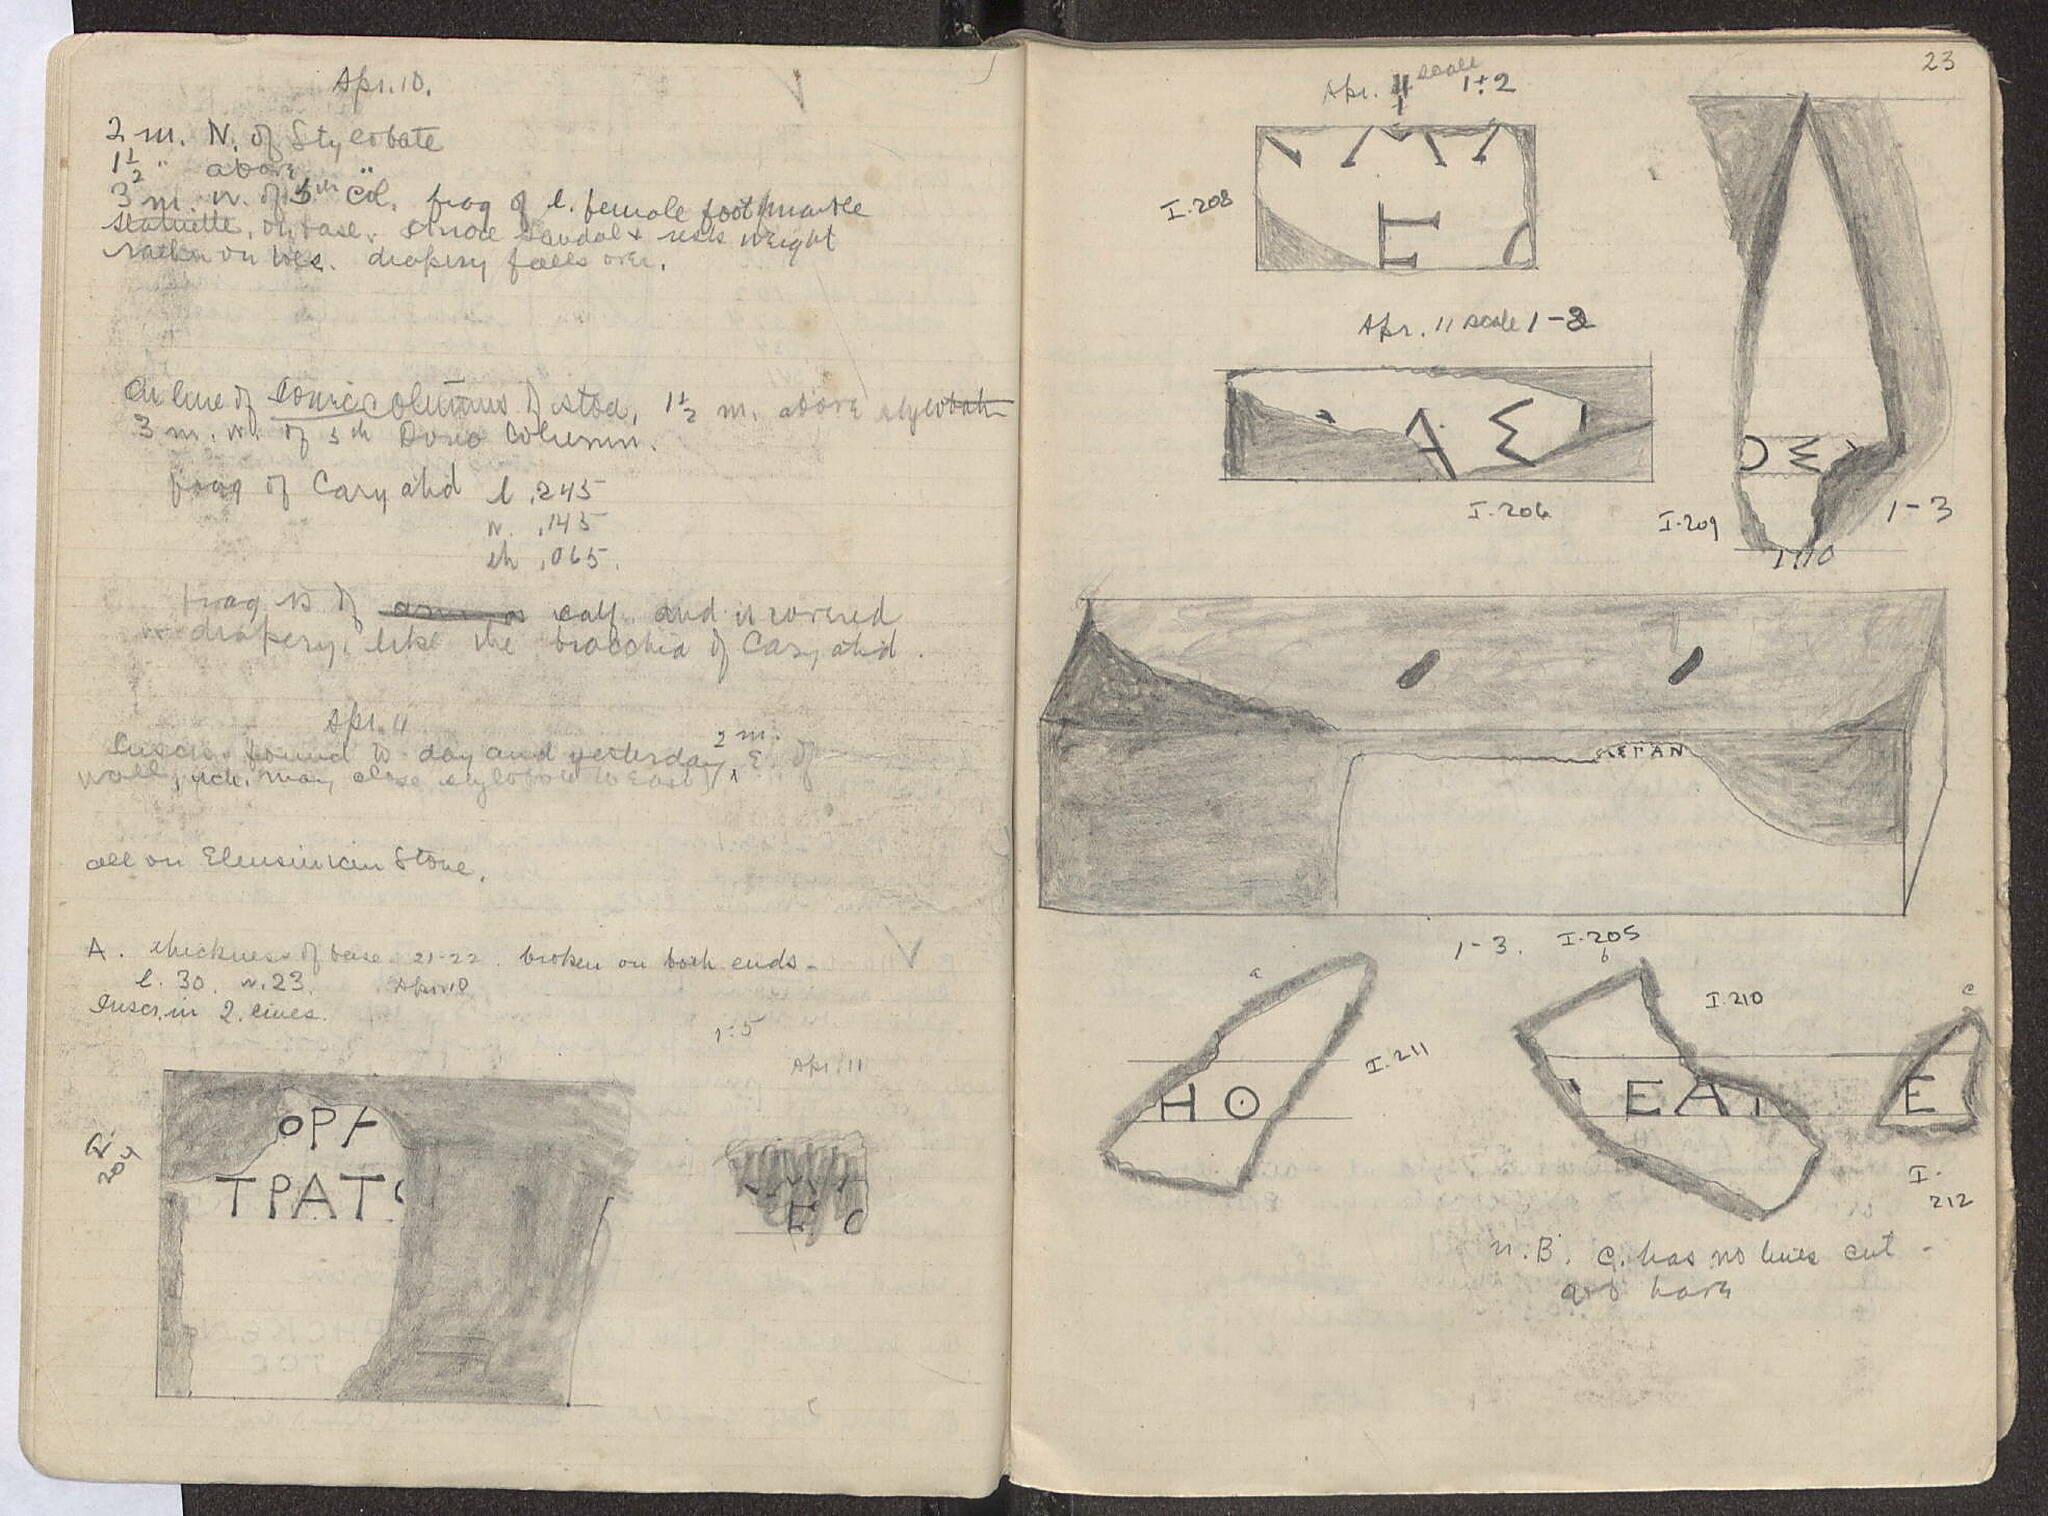 Apr. 10.
2 m. N. of Stylobate
1½ " above "
3 m. N. of 5th Col. frag of l. female foot marble
statuette, on base. shoe sandal & rests weight
rather on toes. drapery falls over.
On line of Ionic columns of stoa, 1½ m. above stylobate
3 m. N. of 5th Doric Column.
frag of Caryatid l .245
w. .145
th .065.
frag is of calf and is covered
drapery, like the of Caryatid.
Apr. 11
Inscr. found to-day and yesterday, 2 m. E. of
wall, wh. may close stylobate to East
all on Eleusinian Stone.
A. thickness of base 21-22. broken on both ends -
l. 30. w. 23. Apr. 10
Inscr. in 2. lines.
1:5
Apr. 11
I. 204
ΟΡΑ
ΤΡΑΤΟ
Ε Ο
23
Apr. 11 scale 1÷2
I.208
Ε
Apr. 11 scale 1-2
Α Σ Ι
I.206
Ο Σ
I.209
1-3
ΕΓΑΝ
1-3. I.205
a
b
c
Η Ο
I.211
I.210
ΕΑΙ
Ε
I.
212
N.B. C. has no lines cut -